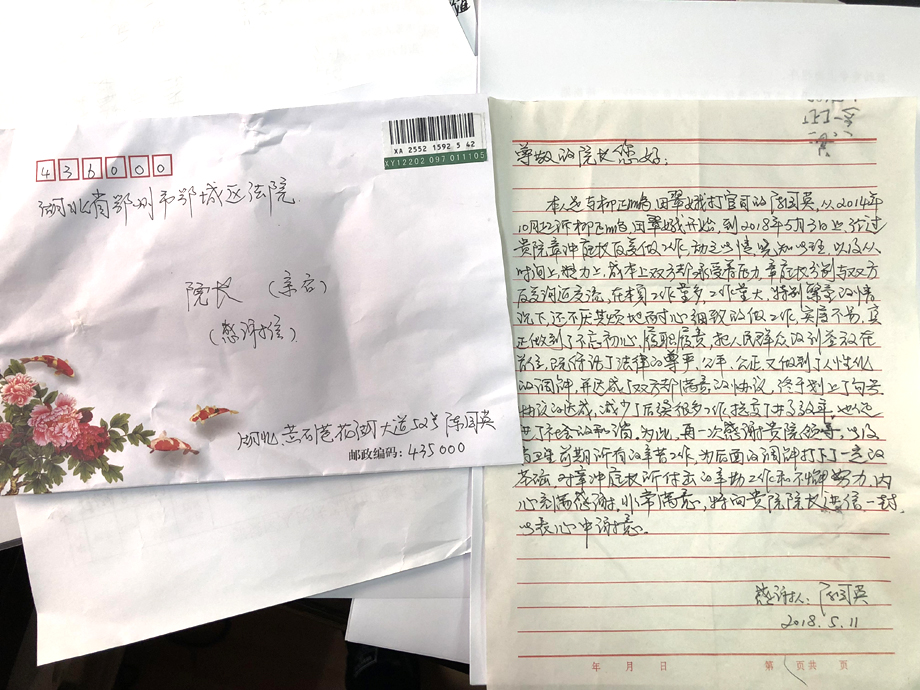 XA 2552 1592 5 42
XY12202 097 011105
436000
湖北省鄂州市鄂城区法院
院长（亲启）
（感谢信）
湖北黄石港花湖大道52号 陈国英
邮政编码：435000
尊敬的院长您好：
本人是与柳正鹏 田翠娥打官司的陈国英，从2014年
10月起诉柳正鹏 田翠娥开始，到2018年5月3日上 经过
贵院章冲庭长反复做工作，动之以情，晓之以理 以及从
时间上，精力上，成本上双方都承受着压力，章庭长分别与双方
反复沟通交流，在本身工作量多，工作量大，特别繁忙的情
况下，还不厌其烦地耐心细致的做工作，实属不易，真
正做到了不忘初心，履职履责，把人民群众的利益放在
首位，既维护了法律的尊严，公平，公正又做到了人性化
的调解，并达成了双方都满意的协议，终于划上了句号
协议的达成，减少了后续很多工作，提高了办事效率，也促
进了社会的和谐。为此，再一次感谢贵院领导，以及
前期所有的辛苦工作，为后面的调解打下了一定的
基础，对章冲庭长所付出的辛勤工作和不懈努力，内
心充满感谢，非常满意，特向贵院院长进信一封，
以表心中谢意。
感谢人：陈国英
2018.5.11
年 月 日 第 页共 页